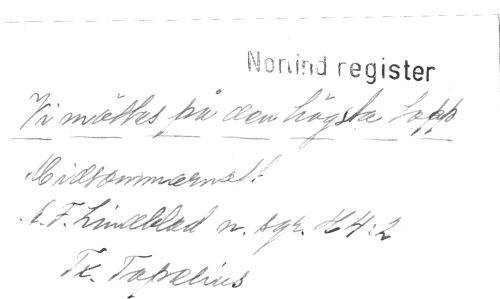 Nonind register
Vi möttes på den högsta topp
Midsommarnatt
A. F. Lindblad n. sgr. H 4:2
Tx. Topelius